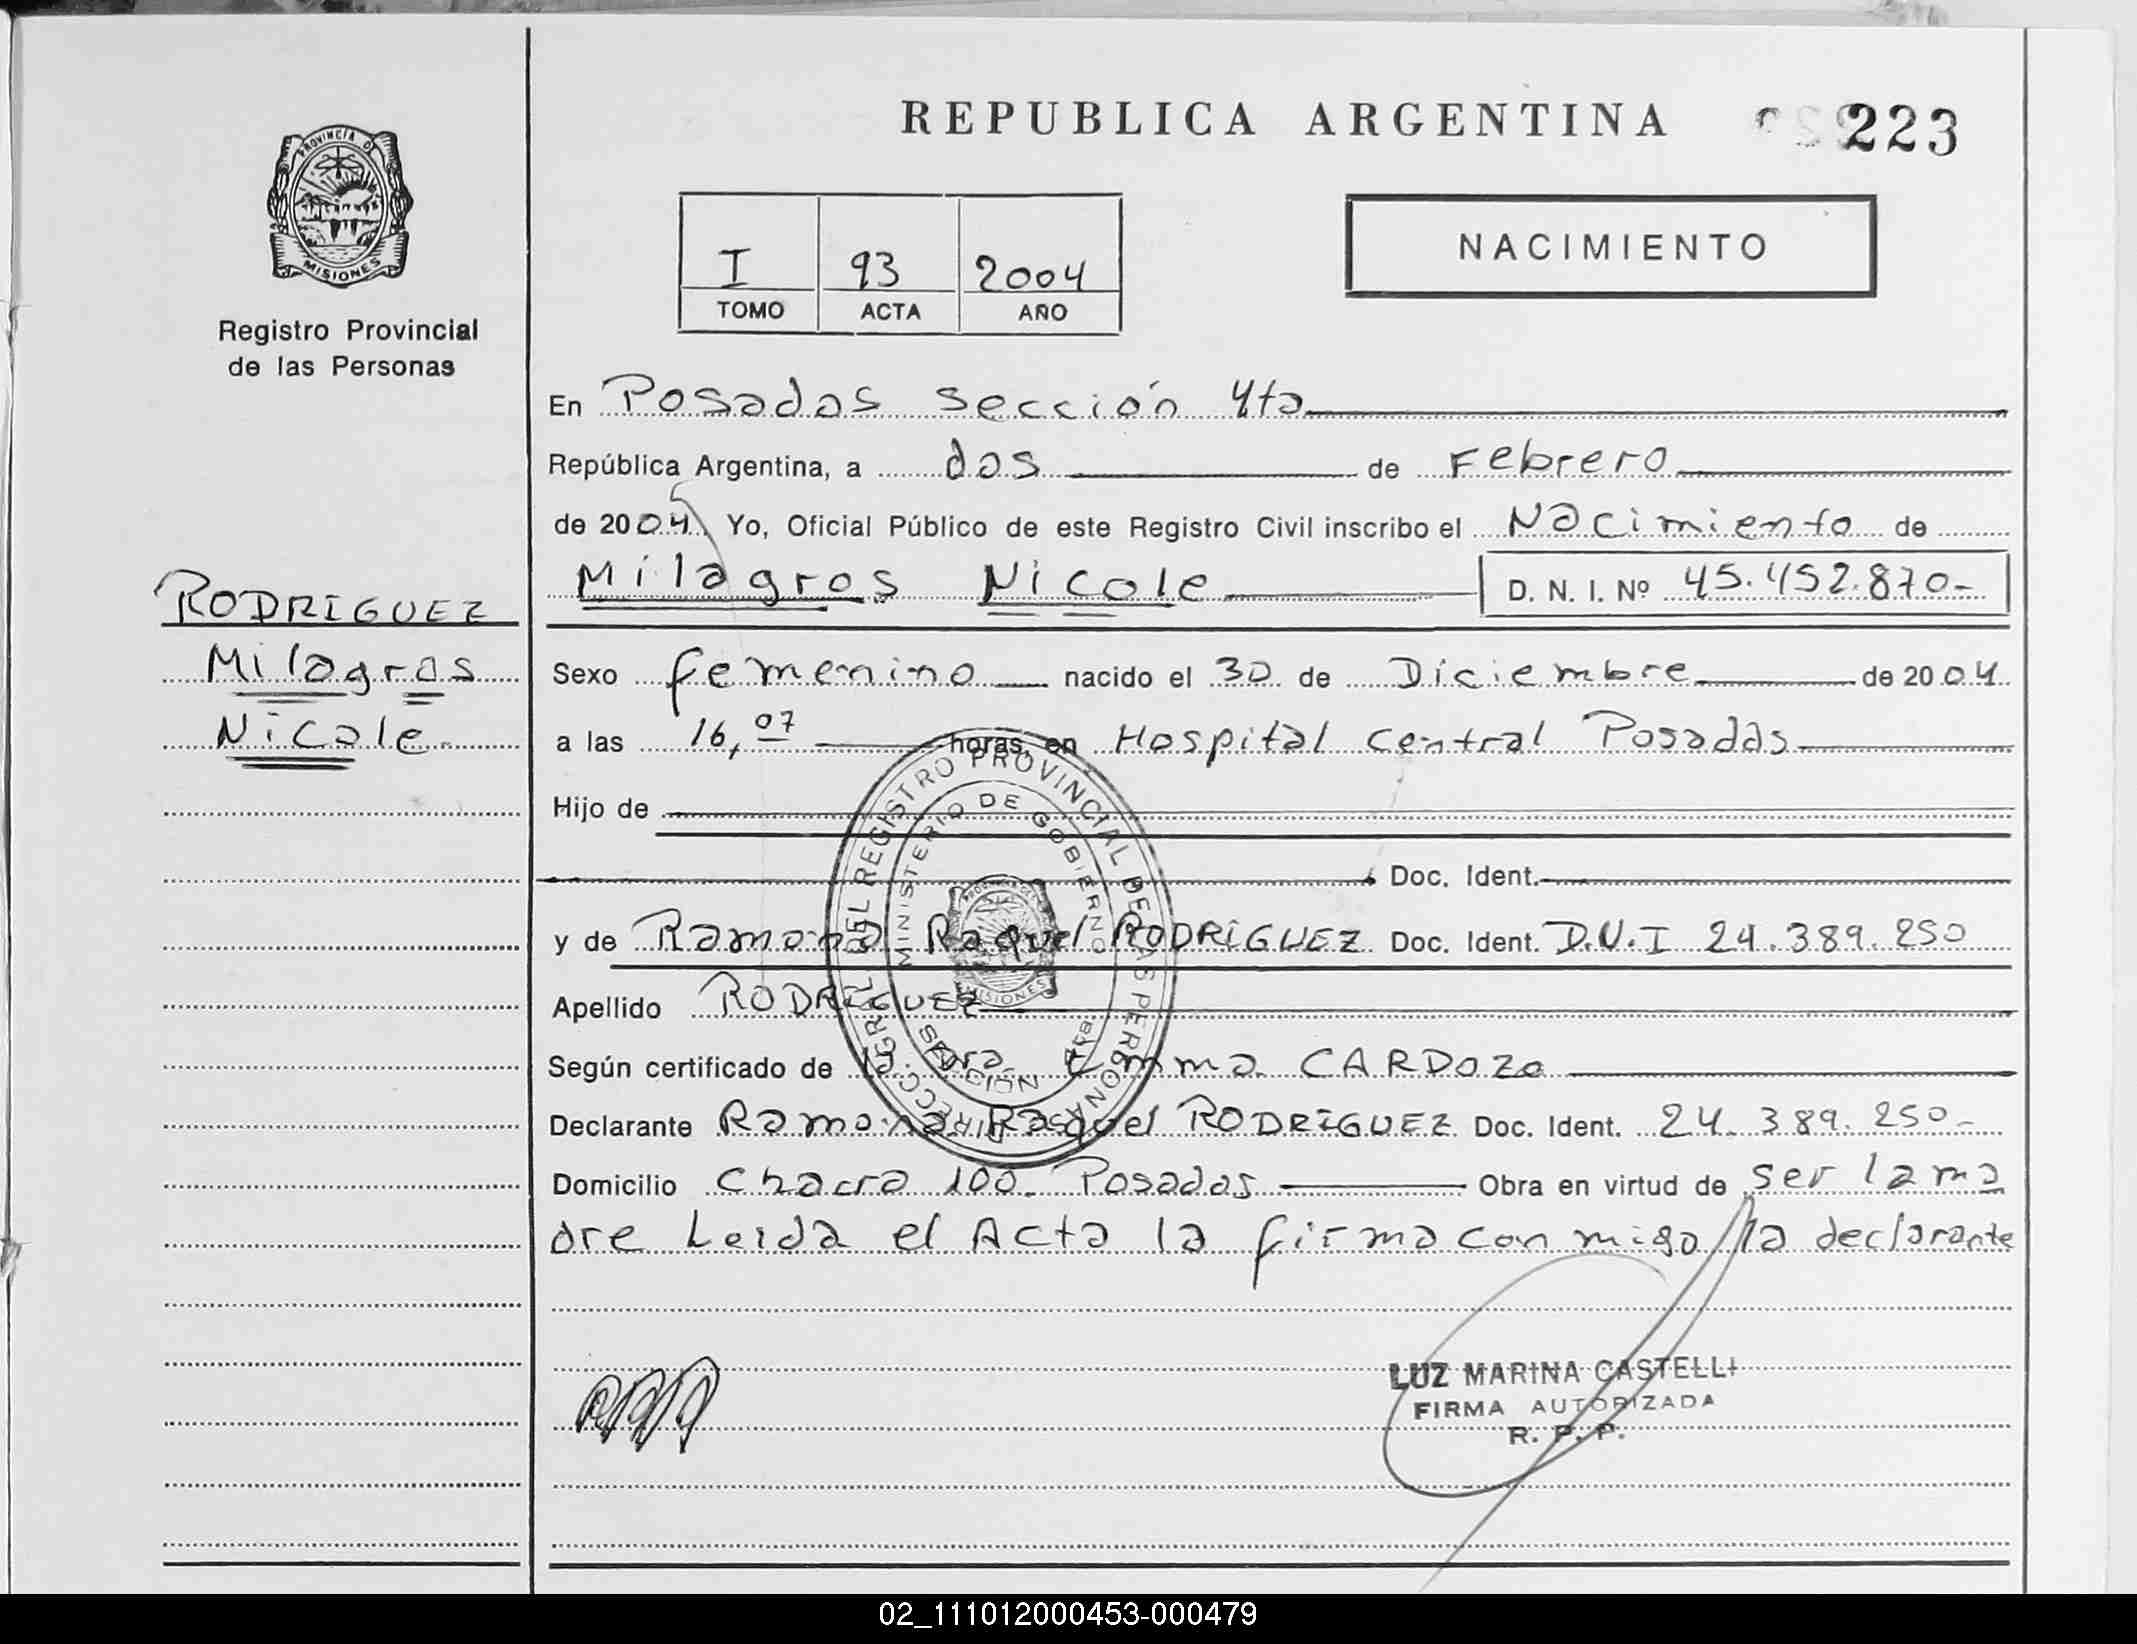 REPUBLICA ARGENTINA
223
PROVINCIA DE
MISIONES
Registro Provincial
de las Personas
I 93 2004
TOMO ACTA AÑO
NACIMIENTO
En Posadas Sección 4ta
República Argentina, a dos de Febrero
de 2004 Yo, Oficial Público de este Registro Civil inscribo el Nacimiento de
Milagros Nicole D. N. I. Nº 45.452.870-
RODRIGUEZ
Milagros
Nicole
Sexo femenino nacido el 30 de Diciembre de 2004
a las 16,07 horas, en Hospital Central Posadas
Hijo de
Doc. Ident.
y de Ramona Raquel RODRIGUEZ Doc. Ident. D.N.I 24.389.250
Apellido RODRIGUEZ
Según certificado de la Dra. Emma CARDOZO
Declarante Ramona Raquel RODRIGUEZ Doc. Ident. 24.389.250-
Domicilio Chacra 100. Posadas Obra en virtud de ser la ma
dre Leida el Acta la firma conmigo la declarante
DIRECC GRAL DEL REGISTRO PROVINCIAL DE LAS PERSONAS
MINISTERIO DE GOBIERNO
MISIONES
LUZ MARINA CASTELLI
FIRMA AUTORIZADA
R. P. P.
02_111012000453-000479